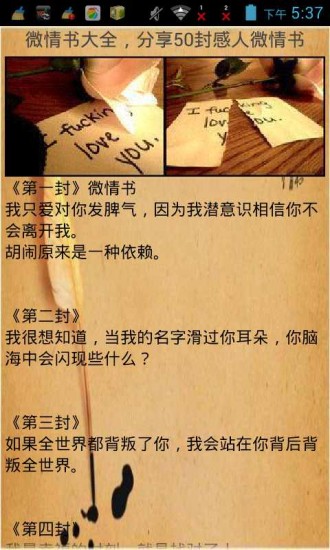 下午 5:37
微情书大全，分享50封感人微情书
I fucking
love
you.
I fucking
love
you.
《第一封》微情书
我只爱对你发脾气，因为我潜意识相信你不
会离开我。
胡闹原来是一种依赖。
《第二封》
我很想知道，当我的名字滑过你耳朵，你脑
海中会闪现些什么？
《第三封》
如果全世界都背叛了你，我会站在你背后背
叛全世界。
《第四封》